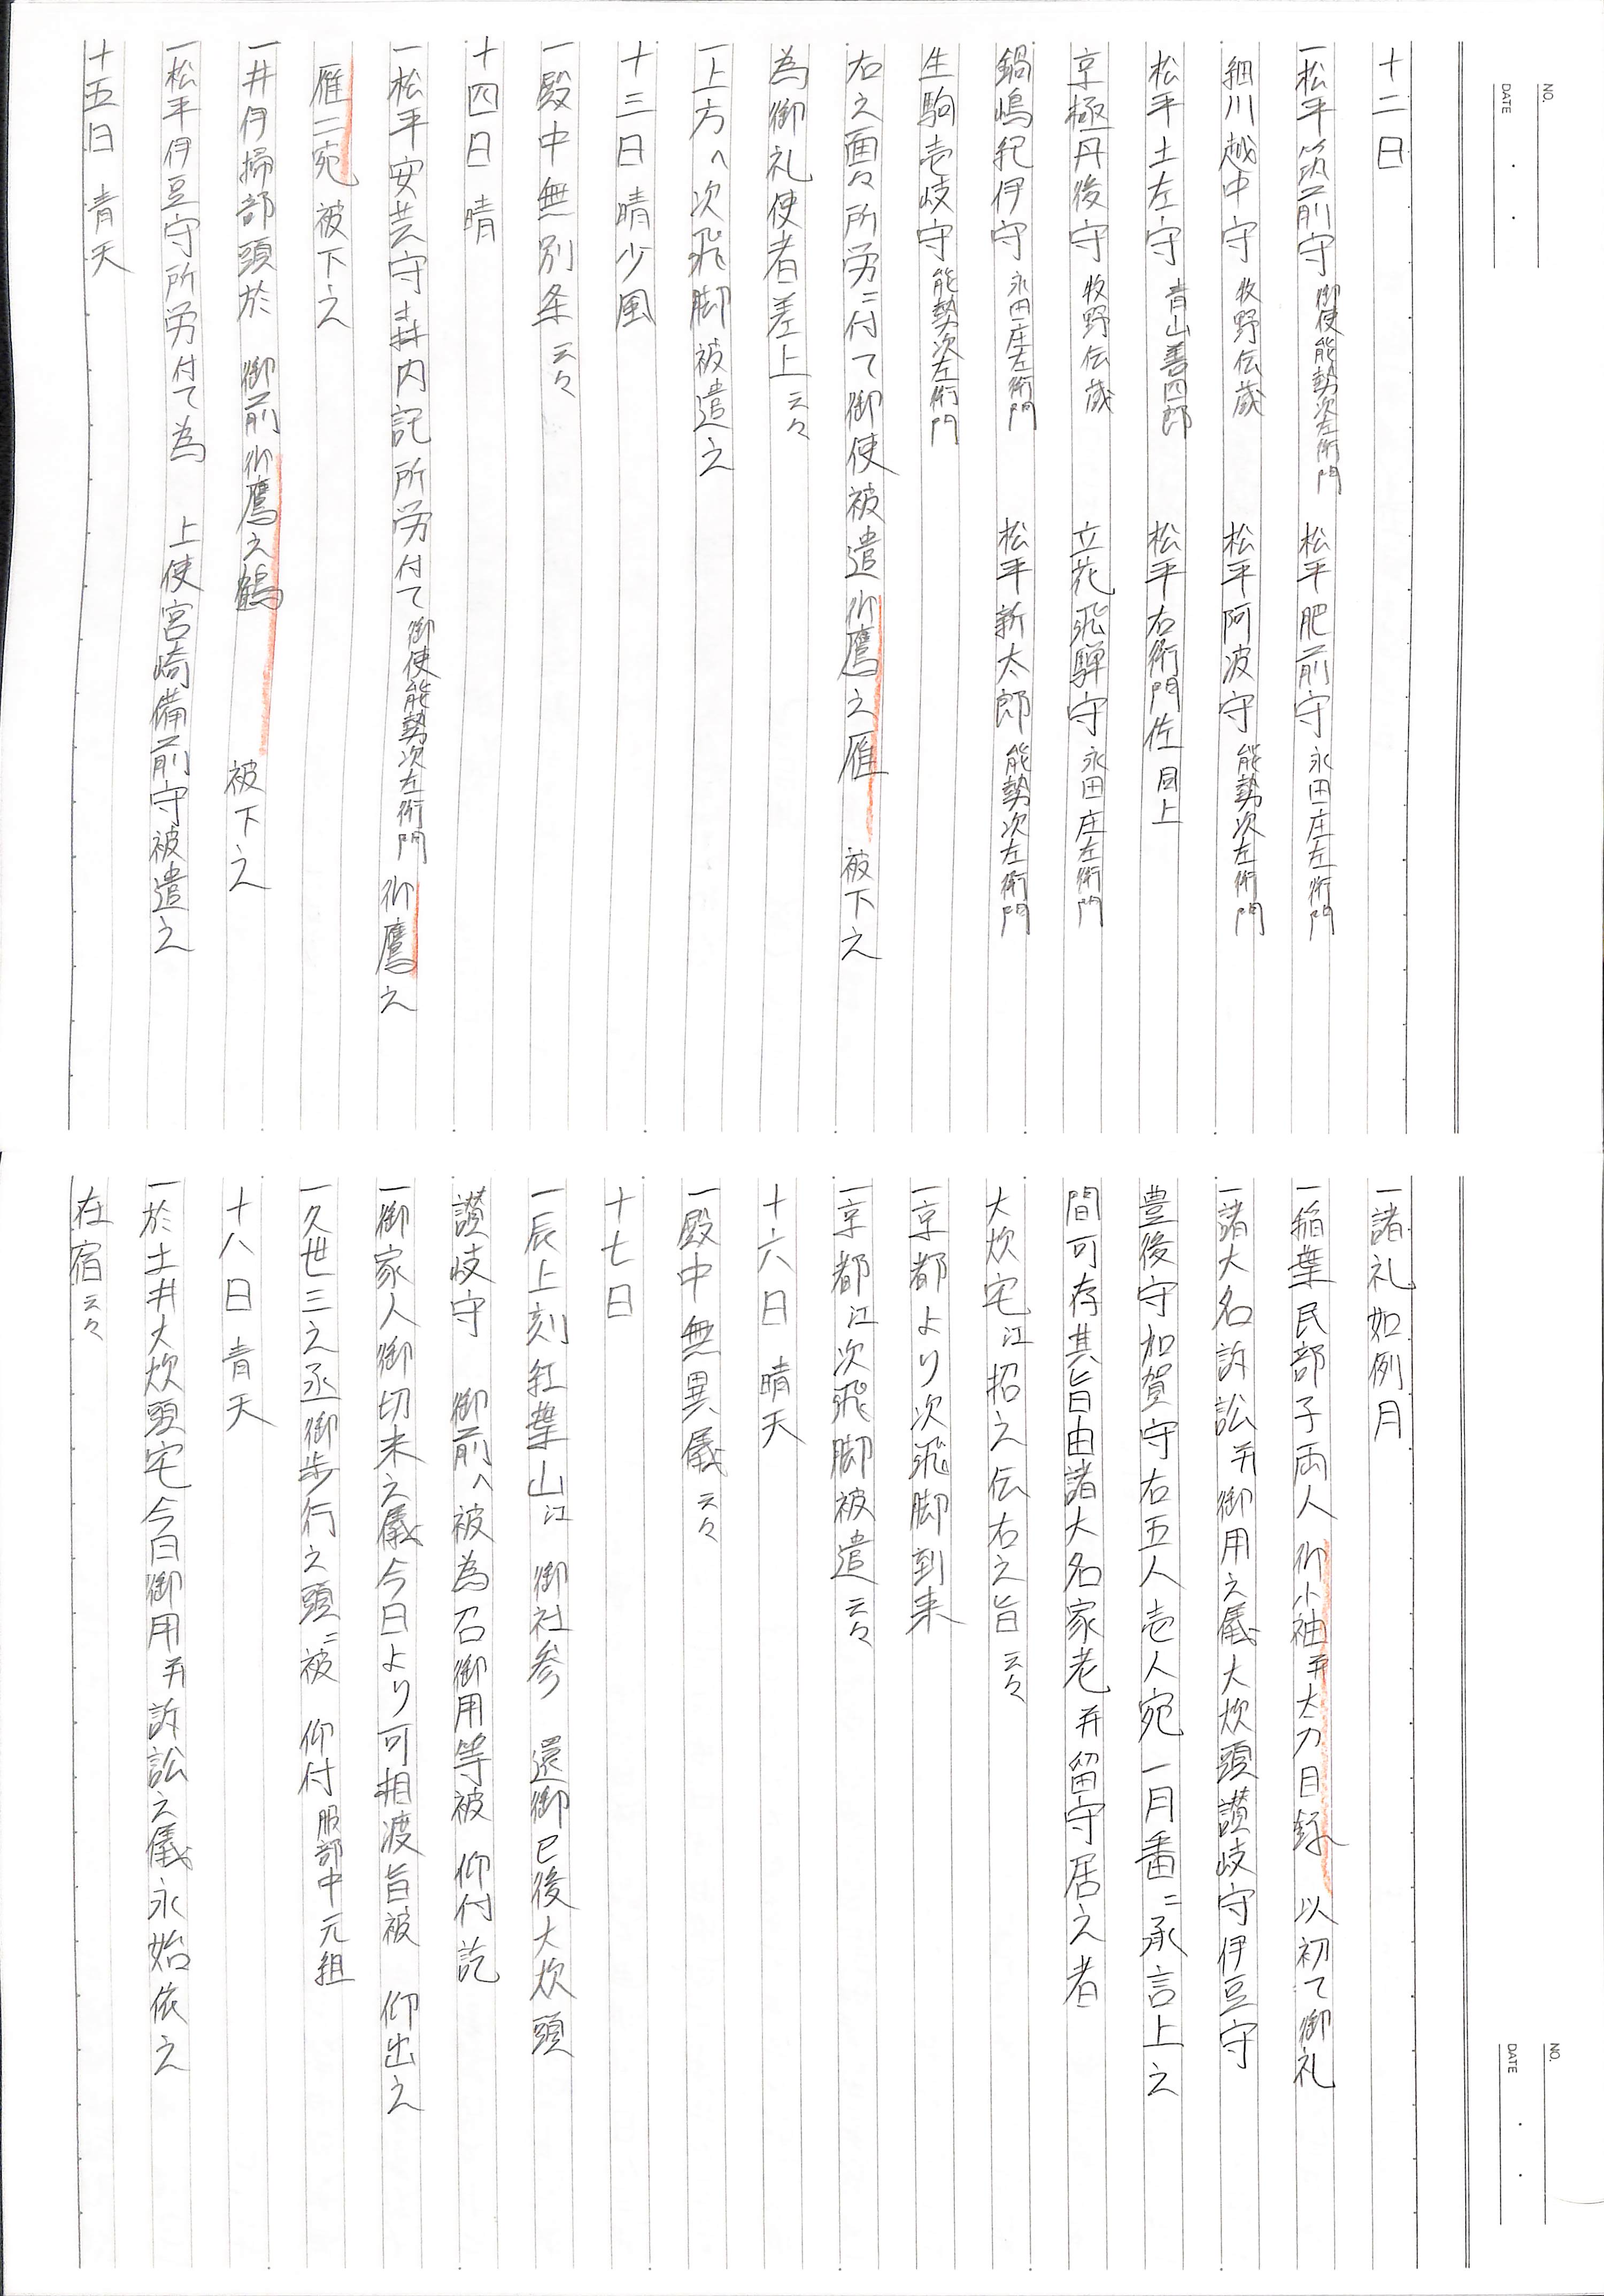 NO.
DATE
十二日
一松平筑前守 御使能勢次左衛門 松平肥前守 永田庄左衛門
細川越中守 牧野伝蔵 松平阿波守 能勢次左衛門
松平土左守 青山善四郎 松平右衛門佐 同上
京極丹後守 牧野伝蔵 立花飛騨守 永田庄左衛門
鍋嶋紀伊守 永田庄左衛門 松平新太郎 能勢次左衛門
生駒壱岐守 能勢次左衛門
右之面々所労ニ付て御使被遣御鷹之雁 被下之
為御礼使者差上云々
一上方へ次飛脚被遣之
十三日 晴少風
一殿中無別条云々
十四日 晴
一松平安芸守森内記所労付て御使能勢次左衛門 御鷹之
雁二宛被下之
一井伊掃部頭於 御前御鷹之鶴 被下之
一松平伊豆守所労付て為 上使宮崎備前守被遣之
十五日 青天
NO.
DATE
一諸礼如例月
一稲葉民部子両人御小袖并太刀目録 以初て御礼
一諸大名訴訟并御用之儀大炊頭讃岐守伊豆守
豊後守加賀守右五人壱人宛一月番ニ承言上之
間可存其旨由諸大名家老并留守居之者
大炊宅江招之伝右之旨云々
一京都より次飛脚到来
一京都江次飛脚被遣云々
十六日 晴天
一殿中無異儀云々
十七日
一辰上刻紅葉山江 御社参 還御已後大炊頭
讃岐守 御前へ被為召御用等被 仰付訖
一御家人御切米之儀今日より可相渡旨被 仰出之
一久世三之丞御歩行之頭ニ被 仰付 服部中元組
十八日 青天
一於土井大炊頭宅今日御用并訴訟之儀永始依之
在宿云々